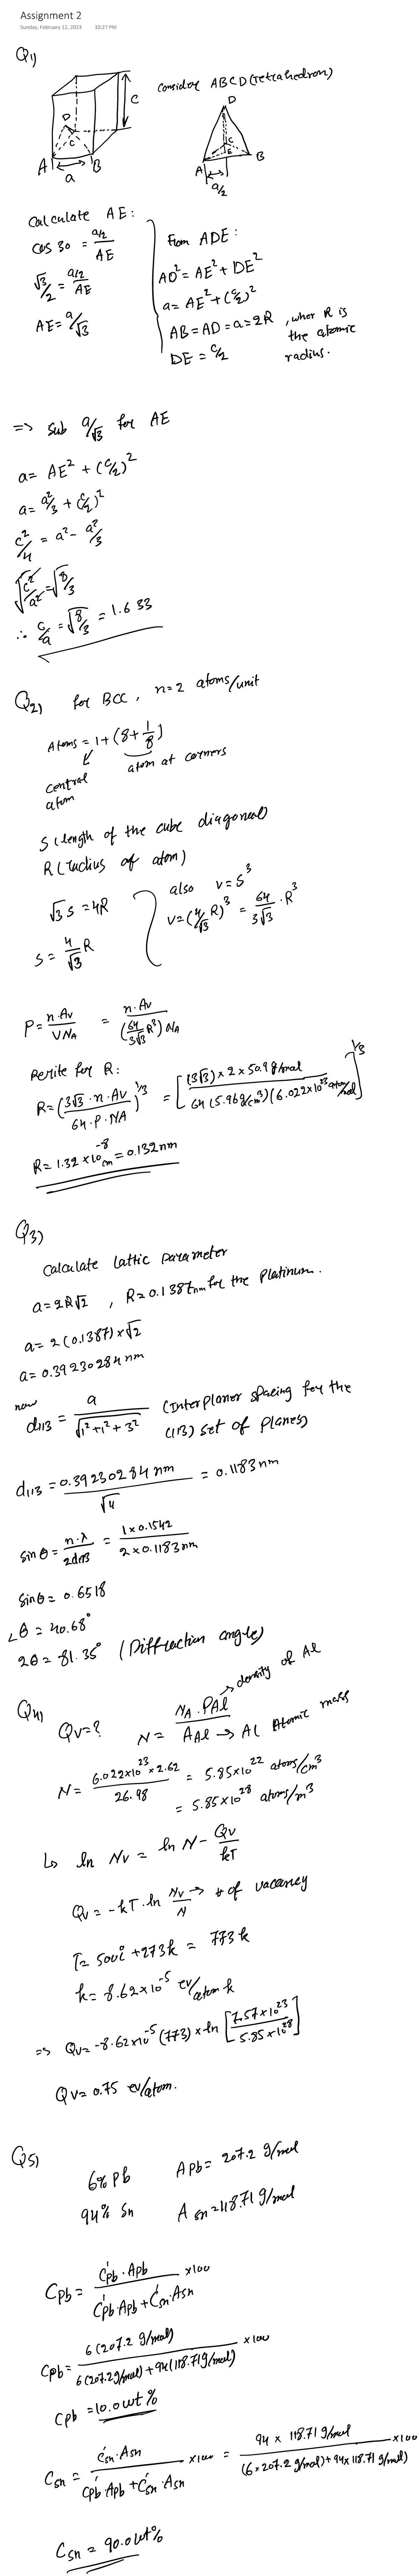 Assignment 2
Sunday, February 12, 2023 10:27 PM
Q1)
consider ABCD (tetrahedron)
D
C
A B
a
C
D
C
E
A B
a/2
Calculate AE:
cos 30 = a/2 / AE
√3/2 = a/2 / AE
AE = a/√3
From ADE:
AD² = AE² + DE²
a = AE² + (c/2)²
AB = AD = a = 2R , wher R is the atomic radius.
DE = c/2
=> sub a/√3 for AE
a = AE² + (c/2)²
a = a²/3 + (c/2)²
c²/4 = a² - a²/3
√c²/a² = √8/3
∴ c/a = √8/3 = 1.633
Q2) for BCC, n=2 atoms/unit
Atoms = 1 + (8+1/8)
central atom
atom at corners
S (length of the cube diagonal)
R (radius of atom)
√3 S = 4R
S = 4/√3 R
also v = S³
v = (4/√3 R)³ = 64/3√3 · R³
P = n·Av / VNA = n·Av / (64/3√3 R³) NA
Rerite for R:
R = (3√3 · n · Av / 64 · P · NA)^1/3 = [(3√3) × 2 × 50.9 g/mol / 64 (5.96 g/cm³) (6.022×10²³ atom/mol)]^1/3
R = 1.32 ×10⁻⁸ cm = 0.132 nm
Q3)
Calculate lattic parameter
a = 2R√2 , R = 0.1387 nm for the Platinum.
a = 2(0.1387)×√2
a = 0.39230284 nm
now
d113 = a / √1²+1²+3² (Interplaner spacing for the (113) set of planes)
d113 = 0.39230284 nm / √11 = 0.1183 nm
sin θ = n·λ / 2d113 = 1×0.1542 / 2×0.1183 nm
sin θ = 0.6518
∠θ = 40.68°
2θ = 81.35° (Diffraction angle)
Q4) Qv=? N = NA · PAl → density of Al / AAl → Al Atomic mass
N = 6.022×10²³ × 2.62 / 26.98 = 5.85×10²² atoms/cm³
= 5.85×10²⁸ atoms/m³
↳ ln Nv = ln N - Qv/kT
Qv = -kT · ln Nv/N → # of vacancy
T = 500c + 273k = 773 k
k = 8.62×10⁻⁵ ev/atom k
=> Qv = -8.62×10⁻⁵ (773) × ln [7.57×10²³ / 5.85×10²⁸]
Qv = 0.75 ev/atom.
Q5)
6% Pb APb = 207.2 g/mol
94% Sn Asn = 118.71 g/mol
CPb = C'Pb · APb / C'Pb·APb + C'sn·Asn ×100
CPb = 6(207.2 g/mol) / 6(207.2 g/mol) + 94(118.71 g/mol) ×100
CPb = 10.0 wt%
Csn = C'sn · Asn / C'Pb·APb + C'sn·Asn ×100 = 94 × 118.71 g/mol / (6×207.2 g/mol) + 94×118.71 g/mol) ×100
Csn = 90.0 wt%